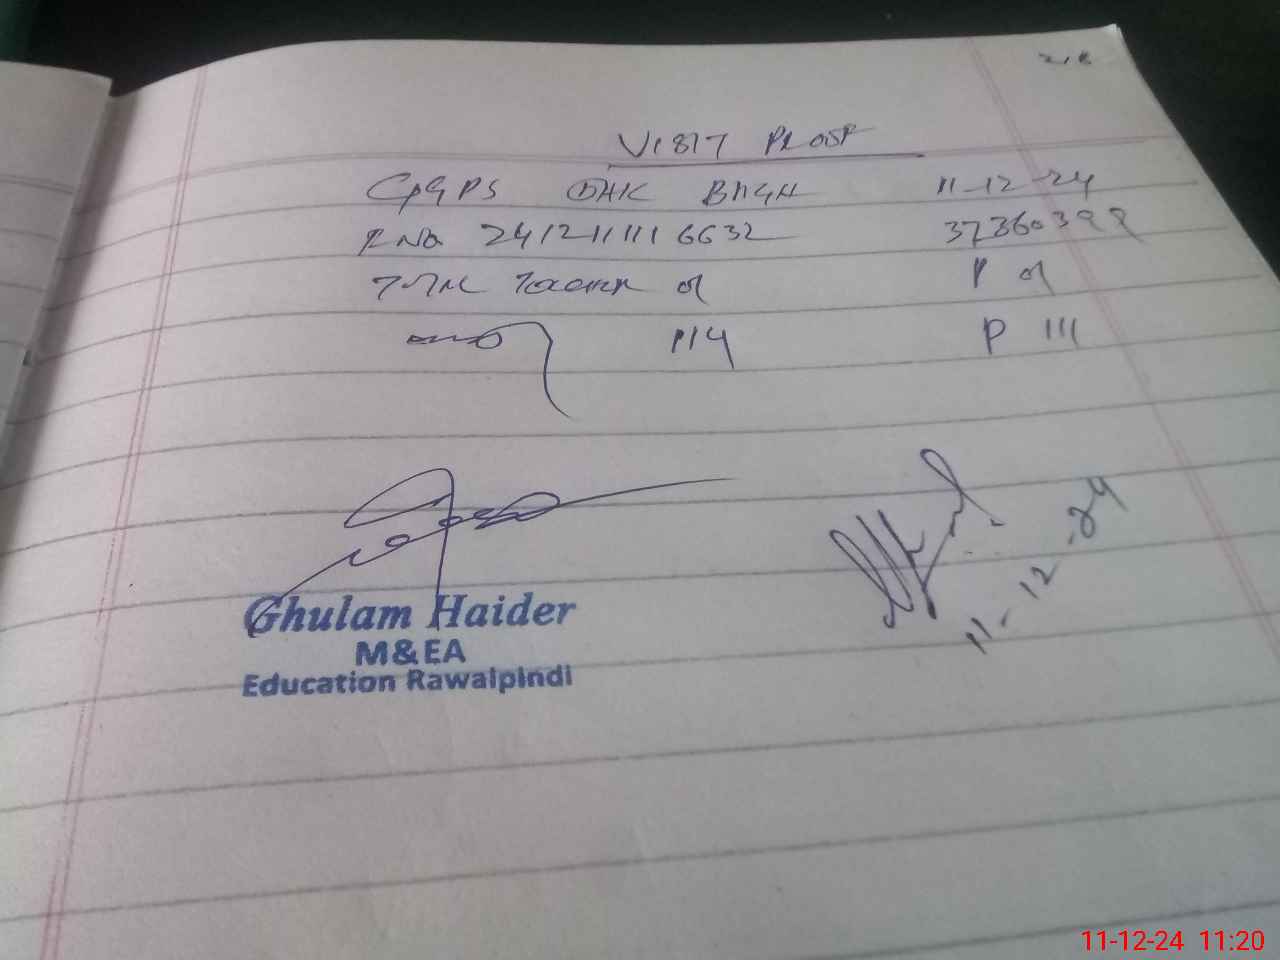 VISIT PROOF
GGPS DHK BAGH 11-12-24
R No. 241211116632 37360399
Total Teacher 01 P 01
114 P 111
Ghulam Haider
M&EA
Education Rawalpindi
11-12-24
11-12-24 11:20